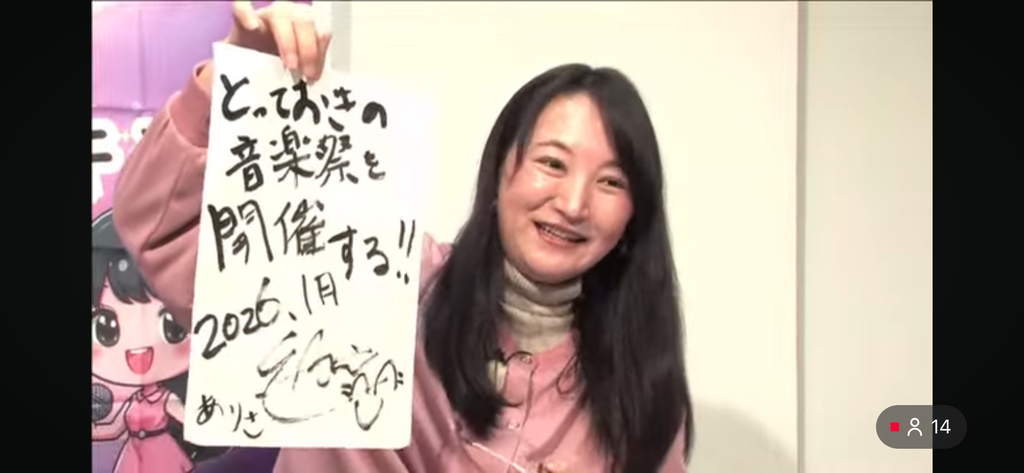 とっておきの
音楽祭を
開催する!!
2026.1月
ありさ
14